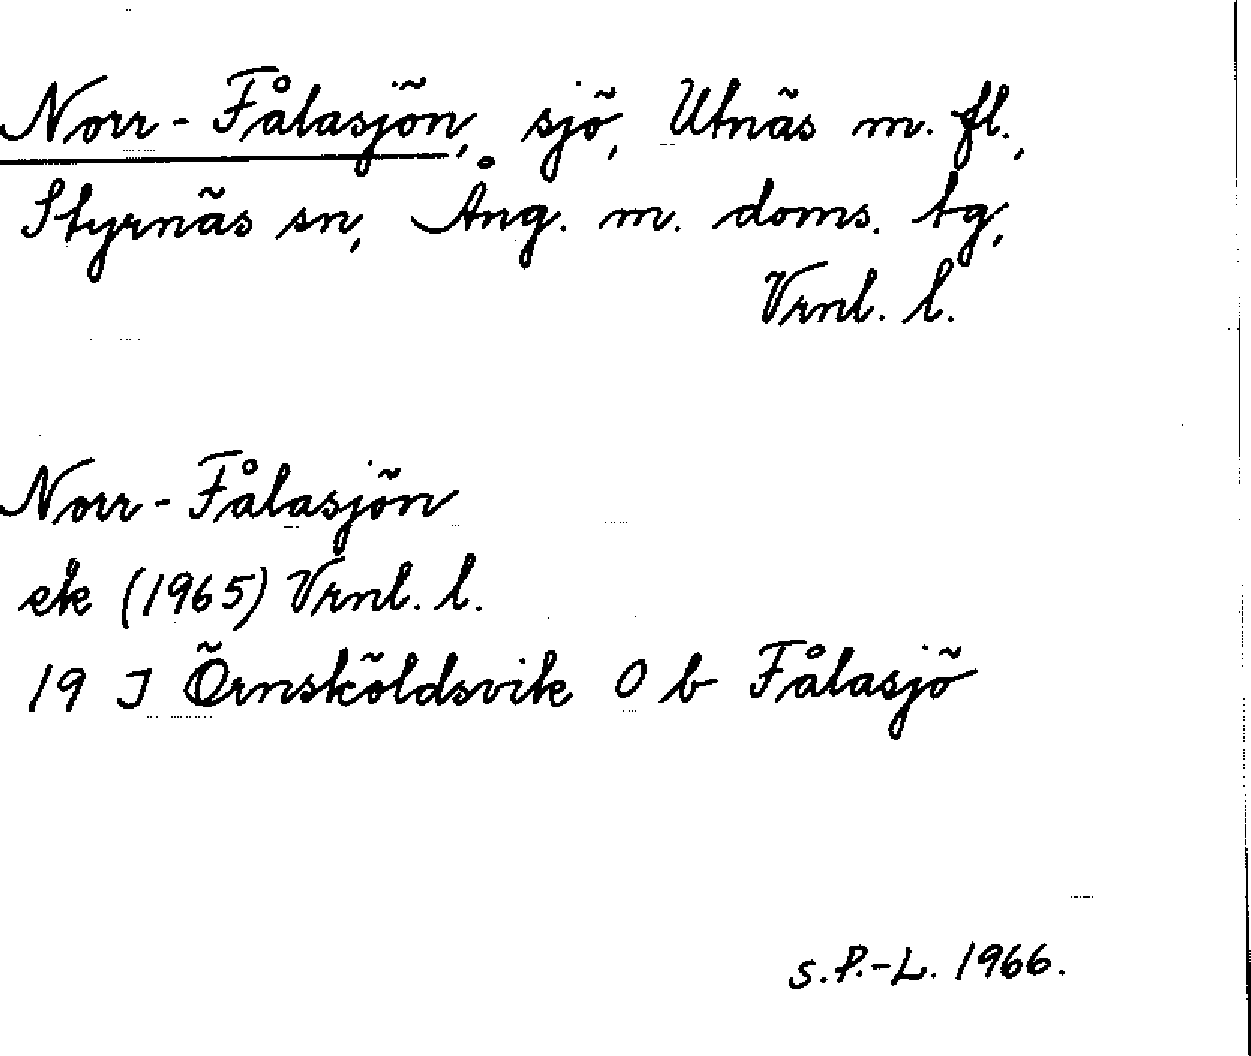 Norr-Fålasjön, sjö, Utnäs m. fl.,
Styrnäs sn, Ång. m. doms. tg,
Vrnl. l.
Norr-Fålasjön
ek (1965) Vrnl. l.
19 J Örnsköldsvik O b Fålasjö
s.P.-L. 1966.